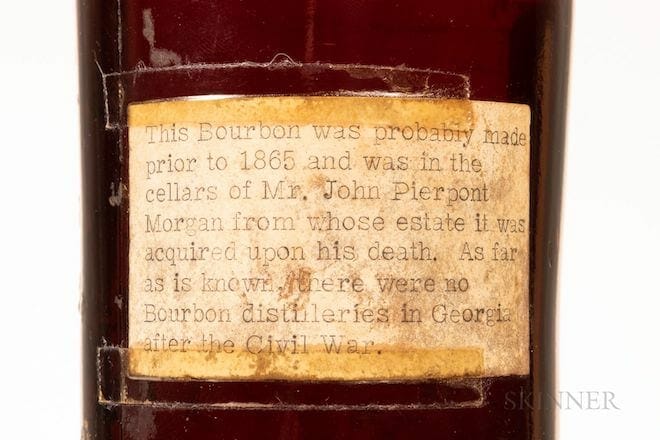 This Bourbon was probably made
prior to 1865 and was in the
cellars of Mr. John Pierpont
Morgan from whose estate it was
acquired upon his death. As far
as is known, there were no
Bourbon distilleries in Georgia
after the Civil War.
SKINNER